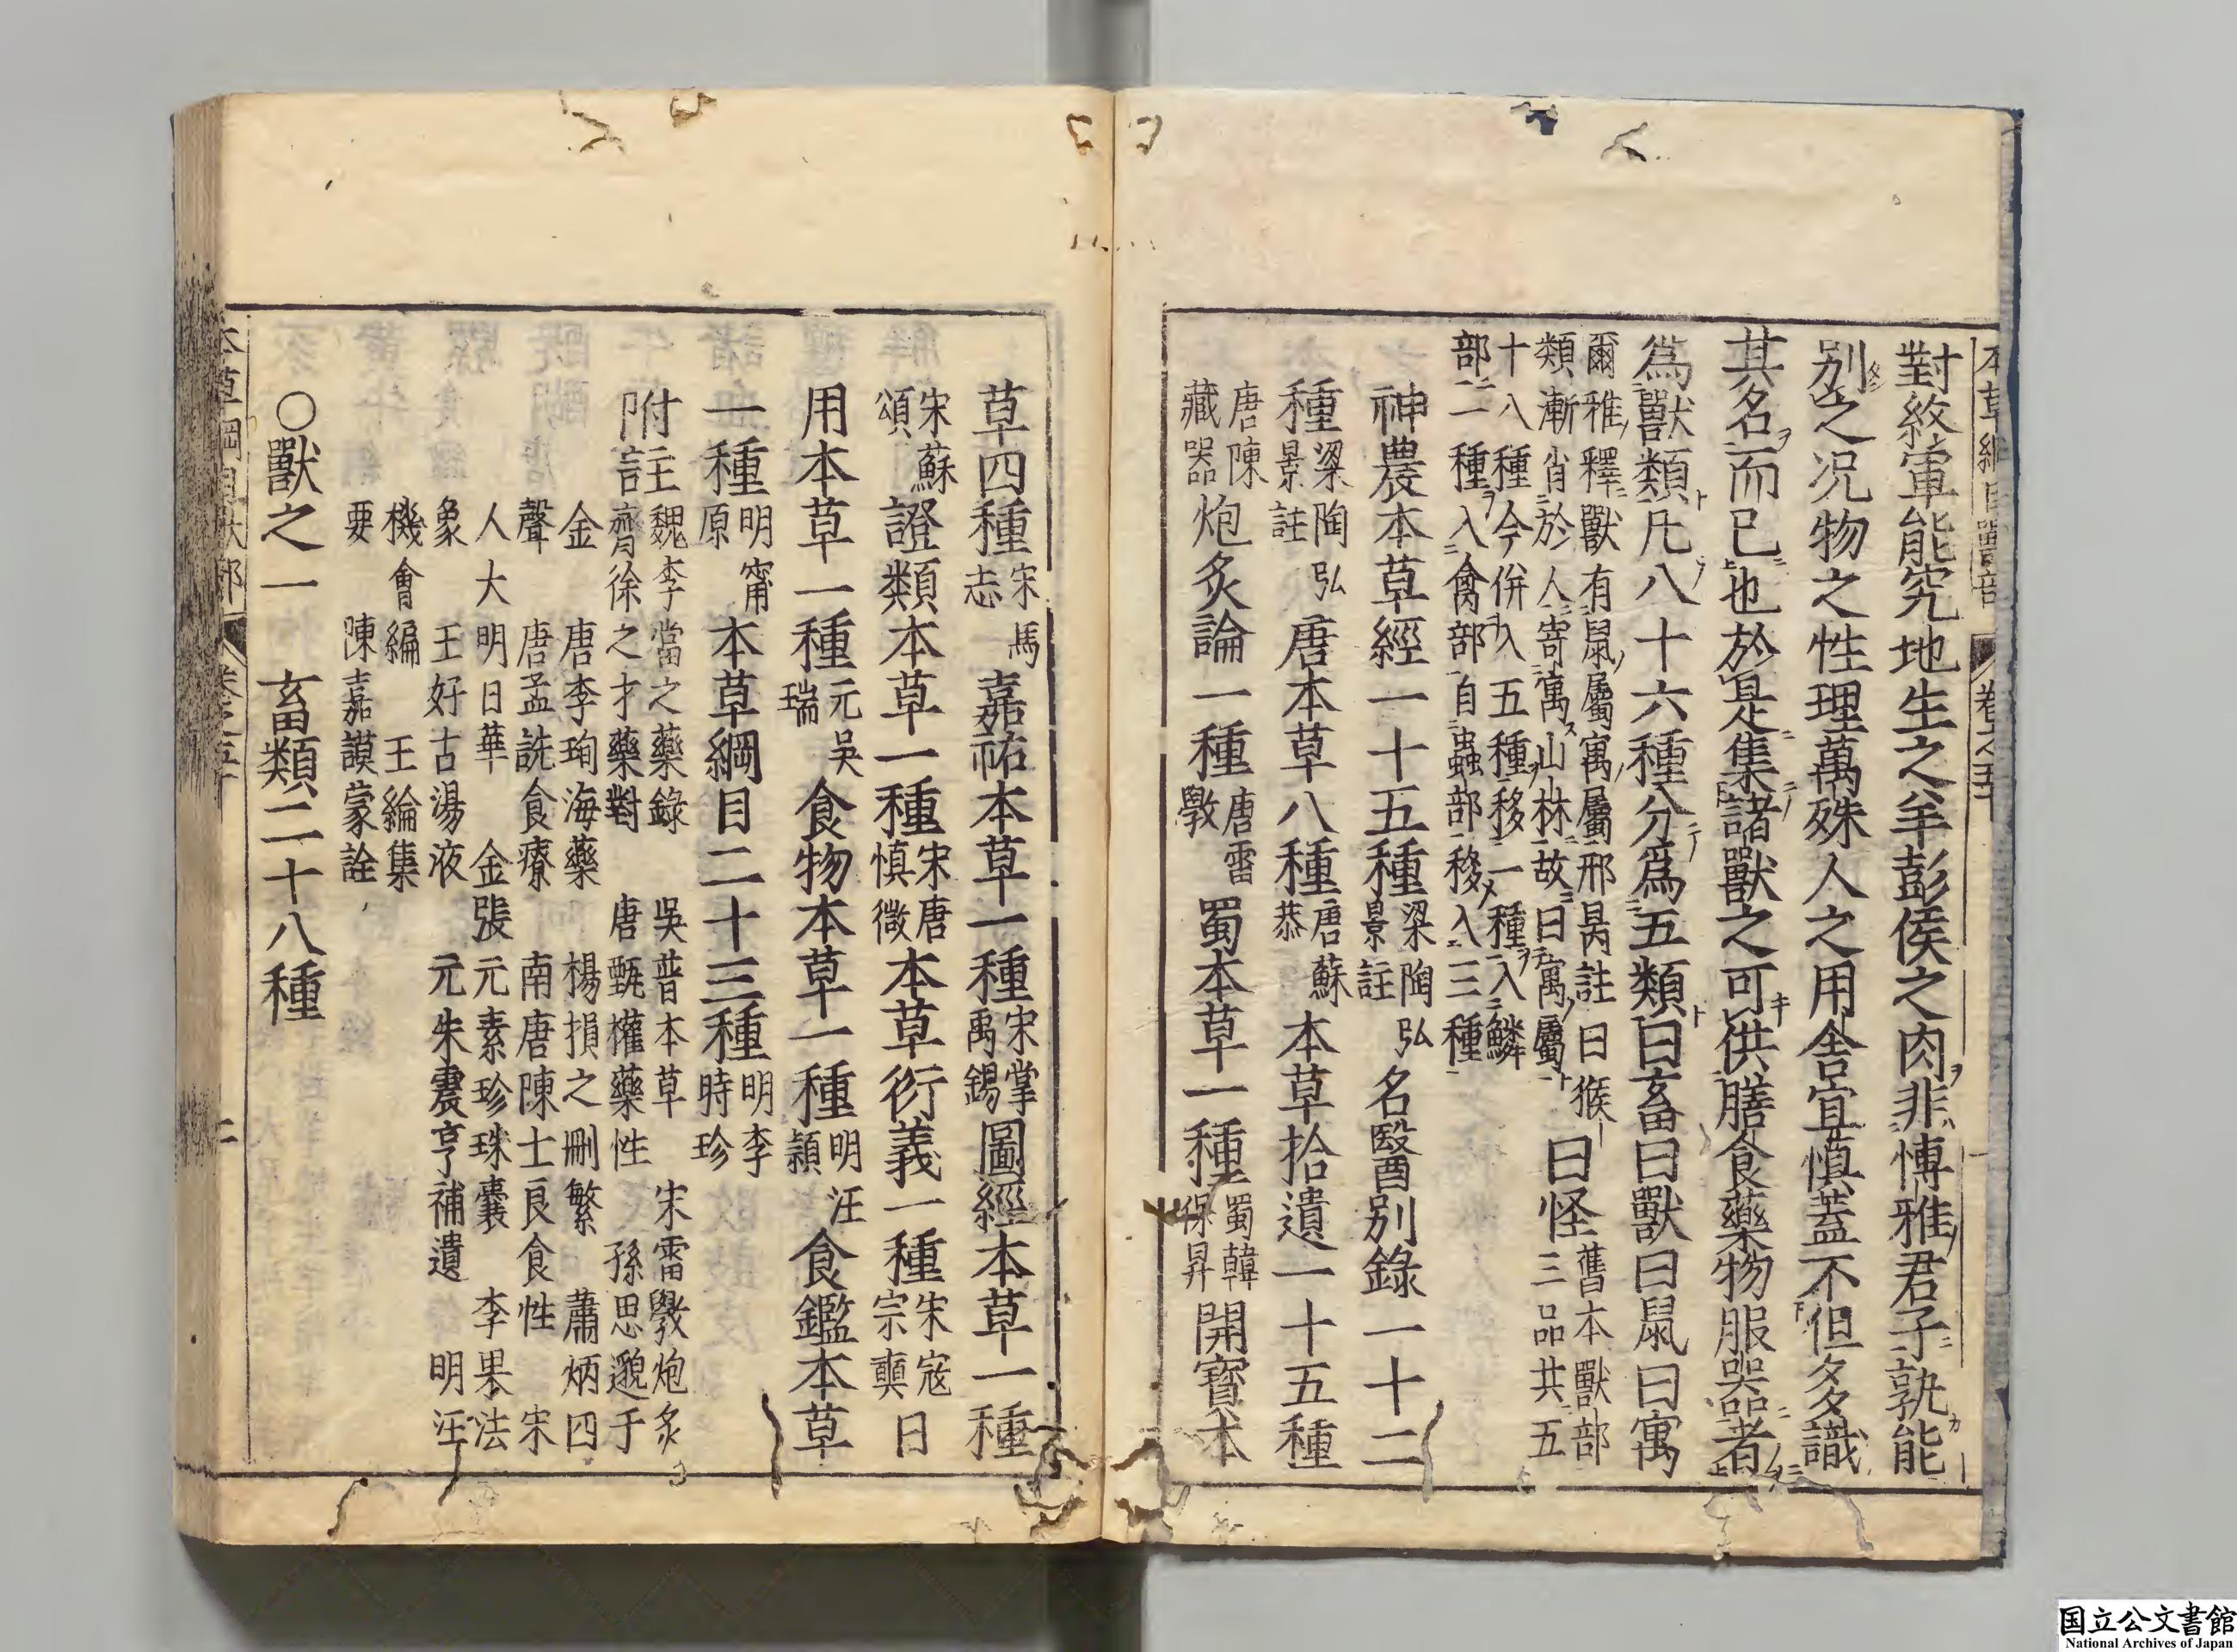 對敘軍能究地生之羊彭侯之肉非博雅君子孰能
別之況物之性理萬殊人之用舍宜慎蓋不但多識
其名而已也於是集諸獸之可供膳食藥物服器者
爲獸類凡八十六種分爲五類曰畜曰獸曰鼠曰寓
爾雅釋獸有鼠屬寓屬邢昺註曰猴
類漸肖於人寄寓山林故曰寓屬
曰怪
舊本獸部
三品共五
十八種今併入五種移一種入鱗
部一種入禽部自蟲部移入三種
神農本草經一十五種
梁陶弘
景註
名醫別錄一十二
種
梁陶弘
景註
唐本草八種
唐蘇
恭
本草拾遺一十五種
唐陳
藏器
炮炙論一種
唐雷
斆
蜀本草一種
蜀韓
保昇
開寶本
草四種
宋馬
志
嘉祐本草一種
宋掌
禹錫
圖經本草一種
宋蘇
頌
證類本草一種
宋唐
慎微
本草衍義一種
宋寇
宗奭
日
用本草一種
元吳
瑞
食物本草一種
明汪
穎
食鑑本草
一種
明甯
原
本草綱目二十三種
明李
時珍
附註
魏李當之藥錄 吳普本草 宋雷斆炮炙
齊徐之才藥對 唐甄權藥性 孫思邈千
金 唐李珣海藥 楊損之刪繁 蕭炳四
聲 唐孟詵食療 南唐陳士良食性 宋
人大明日華 金張元素珍珠囊 李果法
象 王好古湯液 元朱震亨補遺 明汪
機會編 王綸集
要 陳嘉謨蒙詮
○獸之一 畜類二十八種
本草綱目獸部 卷之五十